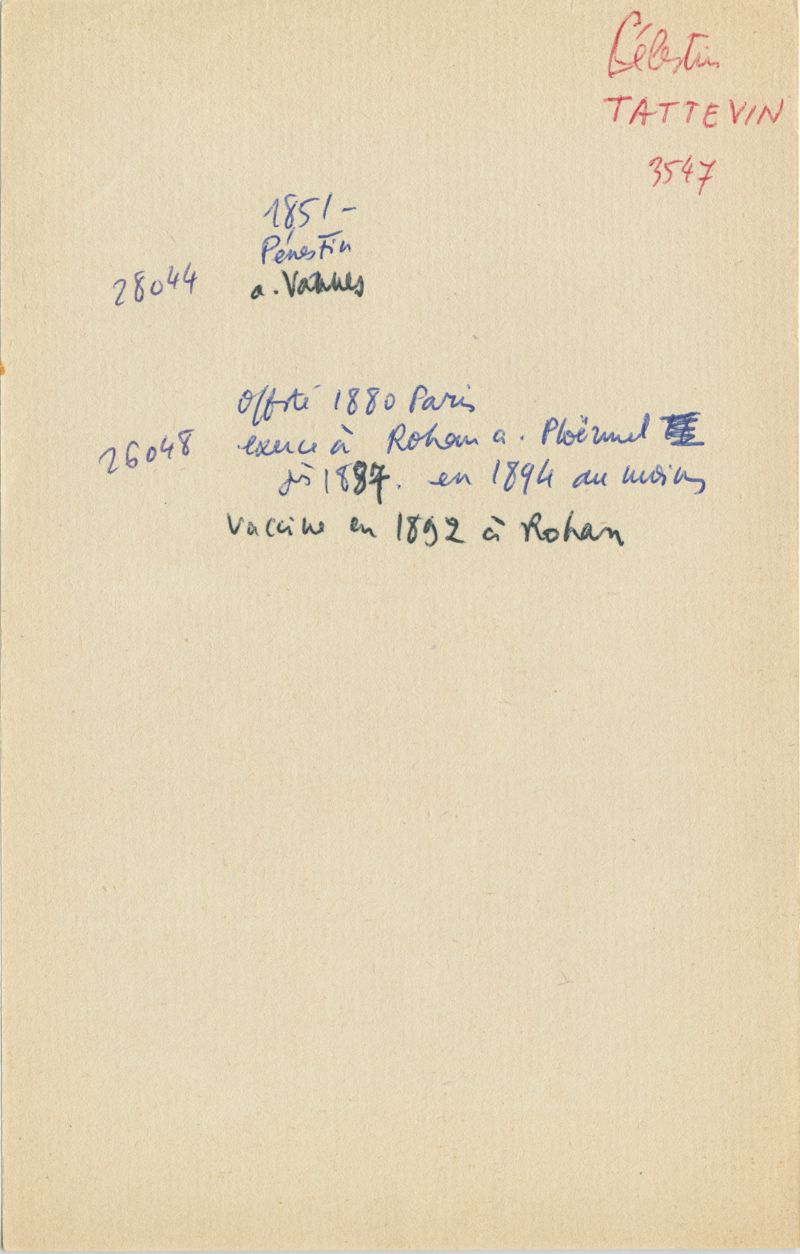 Célestin
TATTEVIN
3547
1851-
Pénestin
28044 a. Vannes
Offté 1880 Paris
26048 exerce à Rohan a. Ploërmel
dès 1887. en 1894 au moins
Vaccine en 1892 à Rohan